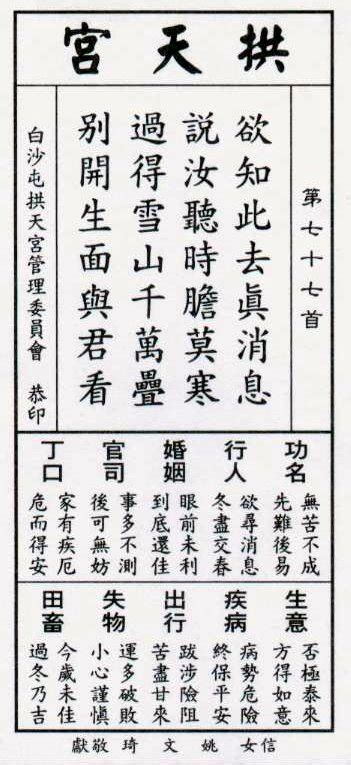 拱天宮
第七十七首
欲知此去眞消息
說汝聽時膽莫寒
過得雪山千萬疊
别開生面與君看
白沙屯拱天宮管理委員會 恭印
功名
無苦不成
先難後易
行人
欲尋消息
冬盡交春
婚姻
眼前未利
到底還佳
官司
事多不測
後可無妨
丁口
家有疾厄
危而得安
生意
否極泰來
方得如意
疾病
病勢危險
終保平安
出行
跋涉險阻
苦盡甘來
失物
運多破敗
小心謹愼
田畜
今歲未佳
過冬乃吉
信女 姚文琦 敬獻